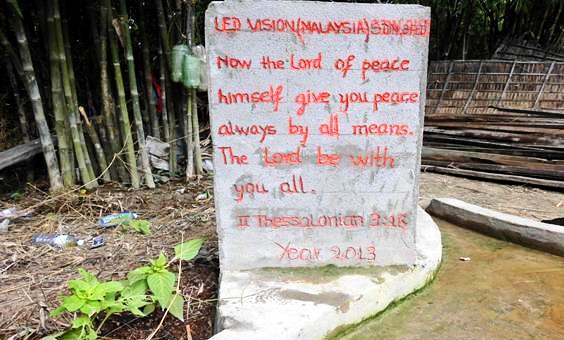 LED VISION (MALAYSIA) SDN.BHD
Now the Lord of peace
himself give you peace
always by all means.
The Lord be with
you all.
II Thessalonian 3:16
Year 2013